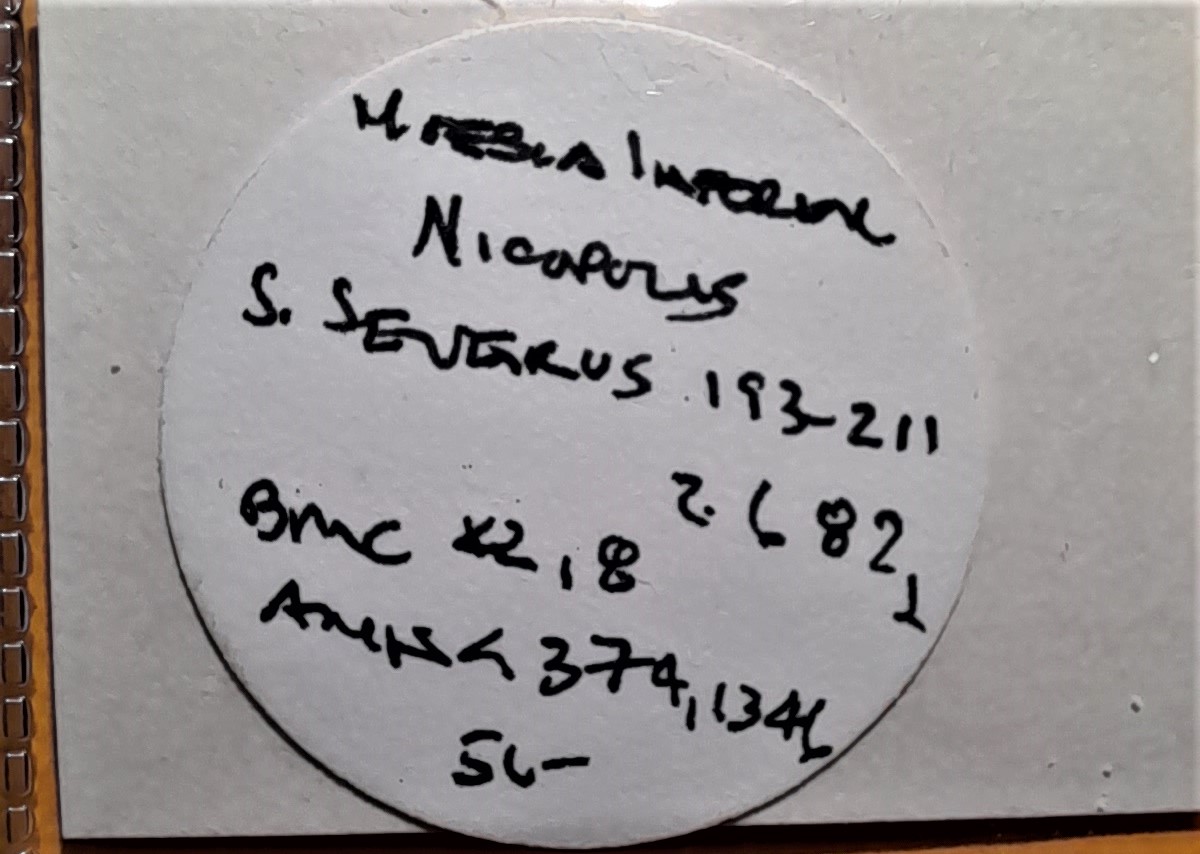 MOESIA INFERIOR
NICOPOLIS
S. SEVERUS 193-211
2.682,
BMC 42,8
374,1346